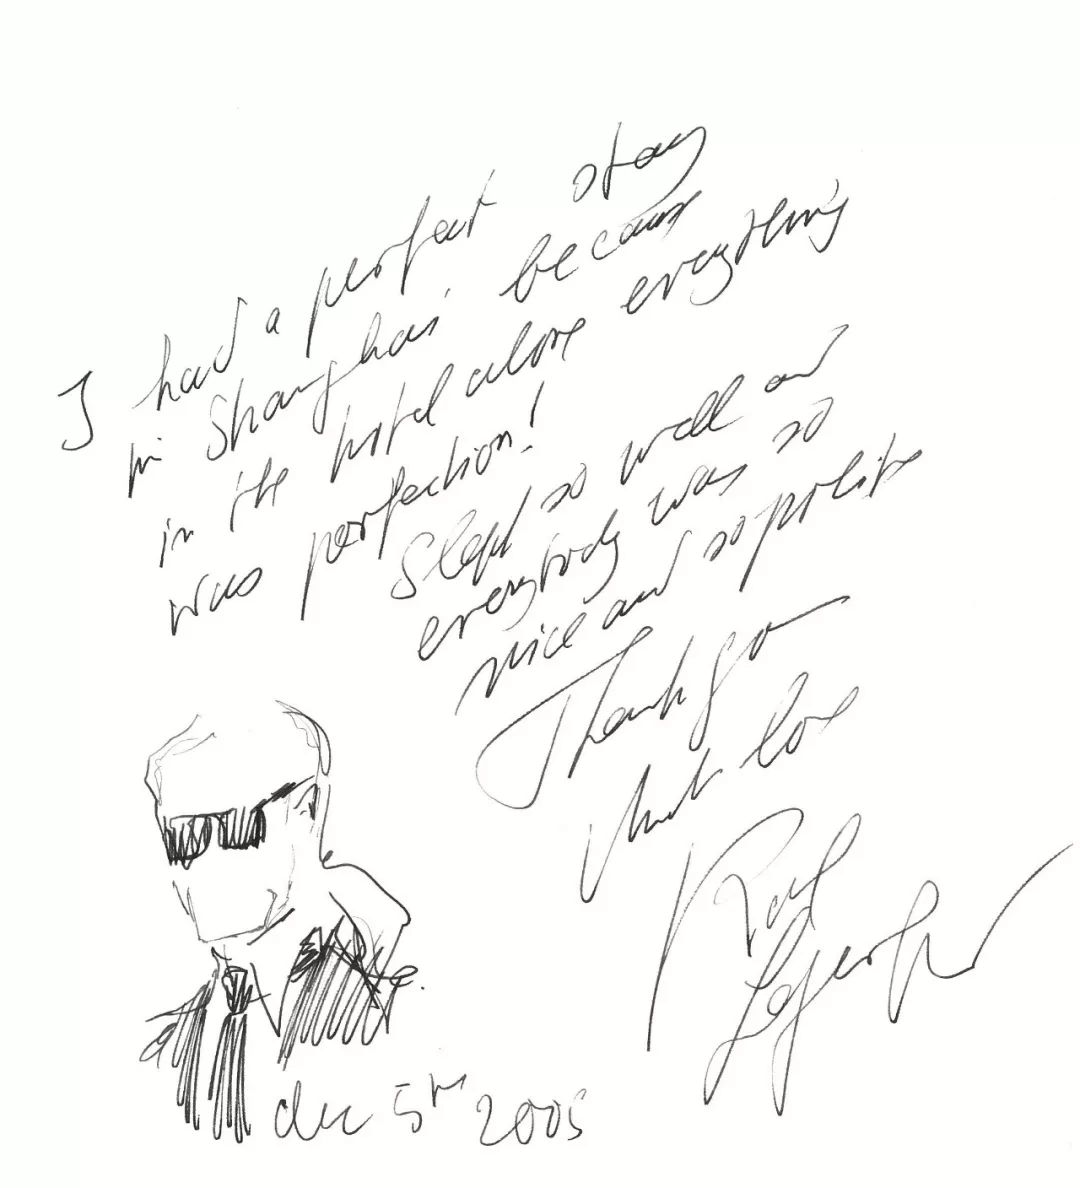 I had a perfect stay
in Shanghai because
in the hotel alone everything
was perfection!
Slept so well and
everybody was so
nice and so polite
Thank you
Much love
Karl
Lagerfeld
dec 5th 2005